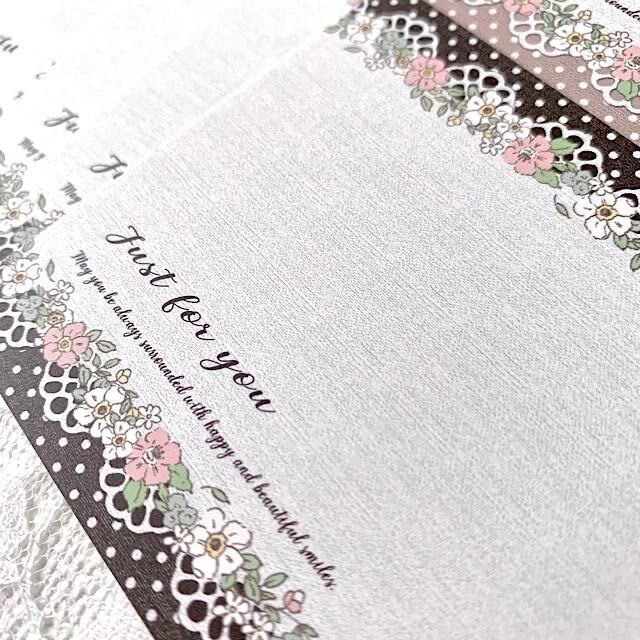 Just for you
May you be always surrounded with happy and beautiful smiles.